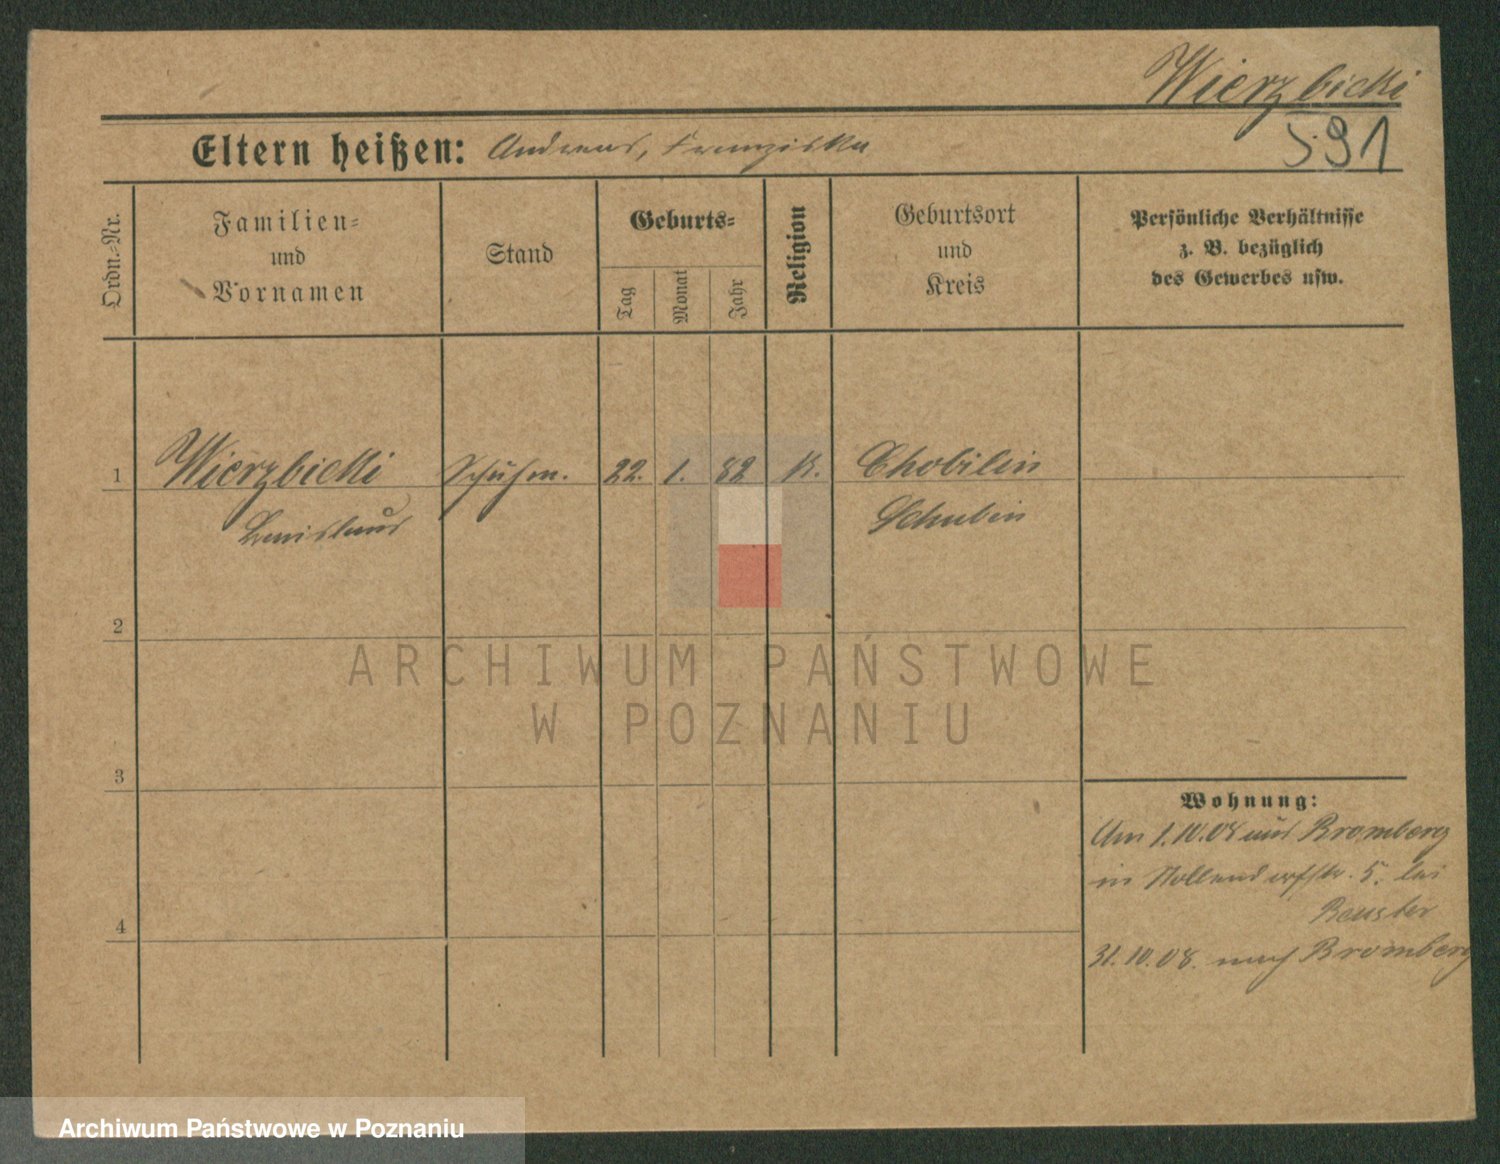 Wierzbicki
591
Eltern heißen: Andreas, Franziska
Ordn.-Nr.
Familien-
und
Vornamen
Stand
Geburts-
Tag
Monat
Jahr
Religion
Geburtsort
und
Kreis
Persönliche Verhältnisse
z. B. bezüglich
des Gewerbes usw.
1 Wierzbicki Schuhm. 22. 1. 82 K. Chobilin
Schubin
2
ARCHIWUM PAŃSTWOWE
W POZNANIU
3
Wohnung:
Am 1.10.08 aus Bromberg
in Nollendorfstr. 5. bei
4
31.10.08. nach Bromberg
Archiwum Państwowe w Poznaniu